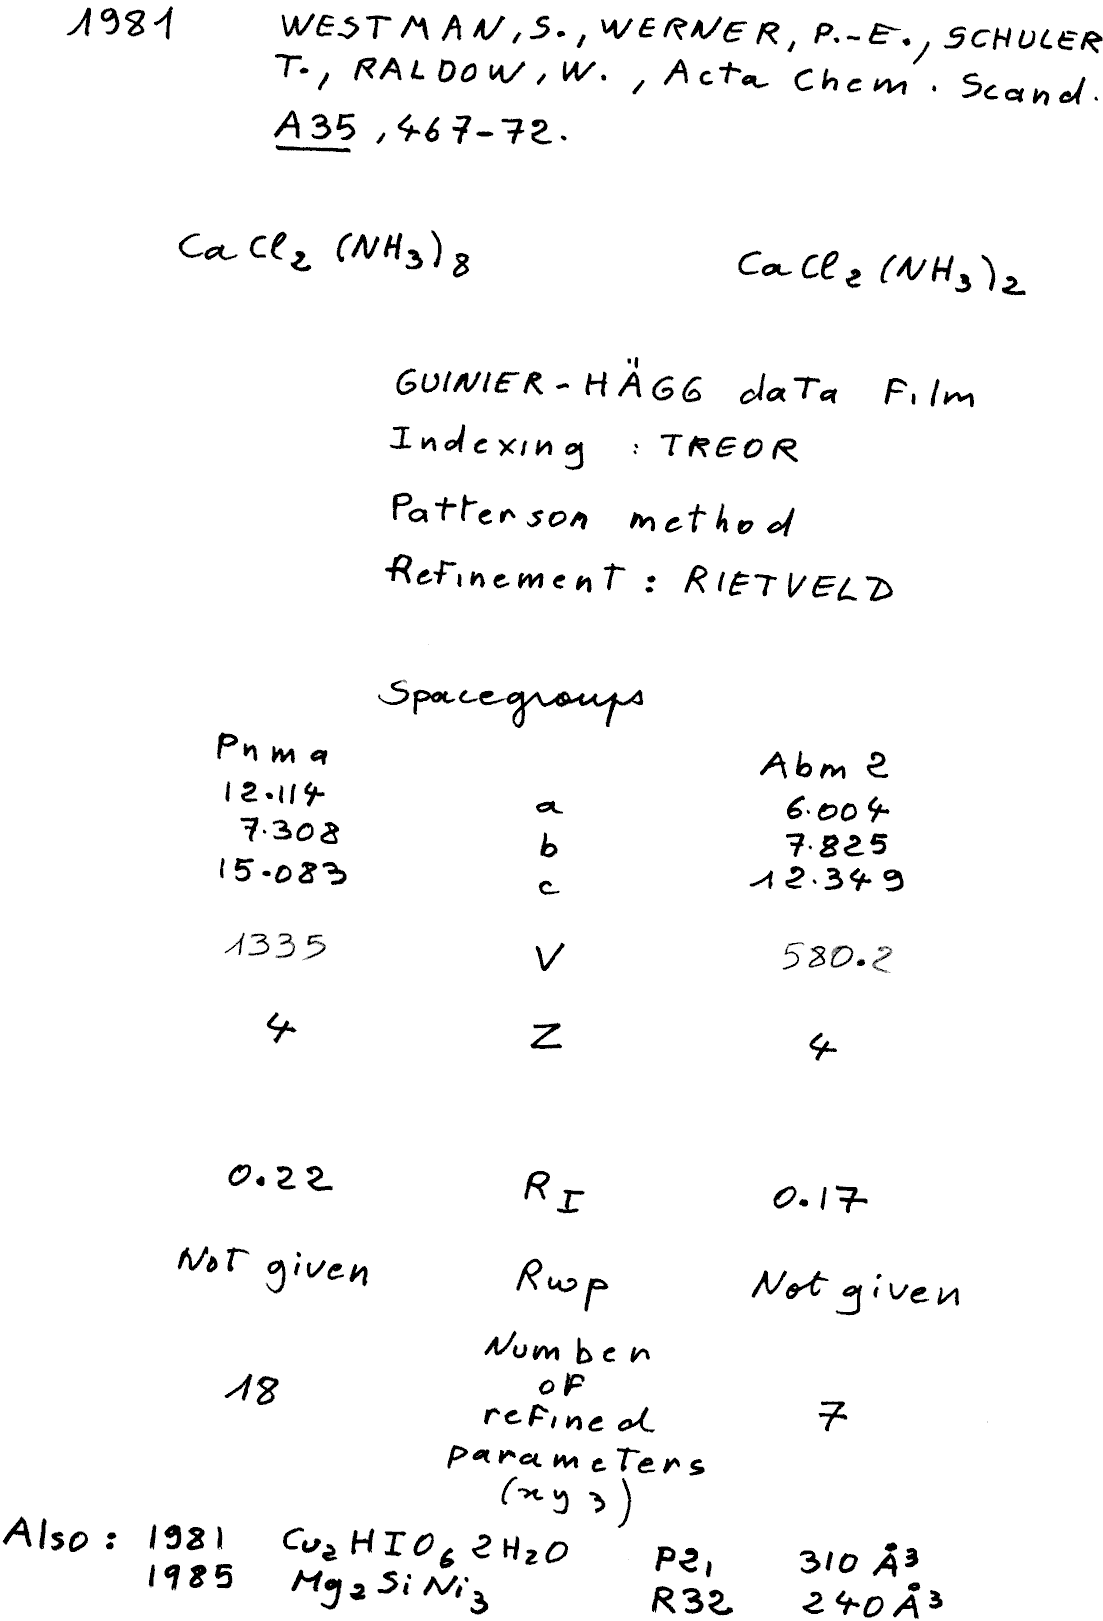 1981 WESTMAN, S., WERNER, P.-E., SCHULER
T., RALDOW, W., Acta Chem. Scand.
A35, 467-72.
CaCl2 (NH3)8 CaCl2 (NH3)2
GUINIER-HÄGG data Film
Indexing : TREOR
Patterson method
Refinement : RIETVELD
Spacegroups
Pnma Abm2
12.114 a 6.004
7.308 b 7.825
15.083 c 12.349
1335 V 580.2
4 Z 4
0.22 RI 0.17
Not given Rwp Not given
Number
of
18 refined 7
parameters
(xyz)
Also : 1981 Cu2HIO6 2H2O P21 310 Å3
1985 Mg2SiNi3 R32 240 Å3